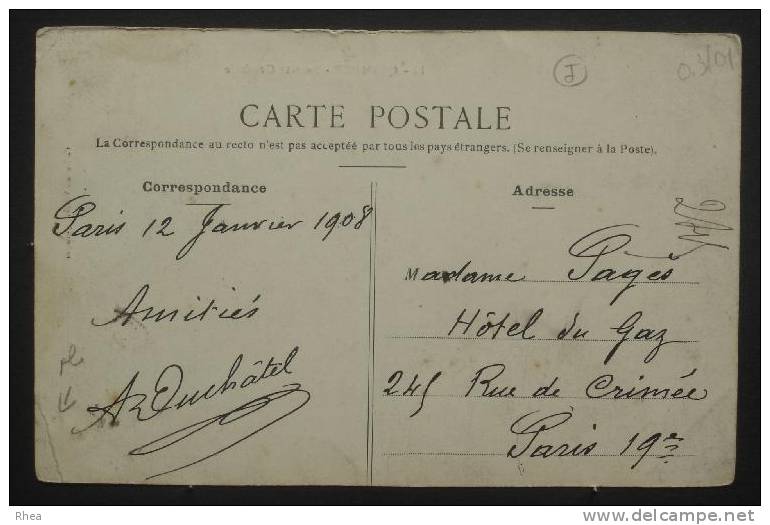 J
CARTE POSTALE
La Correspondance au recto n'est pas acceptée par tous les pays étrangers. (Se renseigner à la Poste).
Correspondance
Paris 12 Janvier 1908
Amitiés
Duchâtel
Adresse
Madame Pagès
Hôtel du Gaz
245 Rue de Crimée
Paris 19e
Rhea
www.delcampe.net